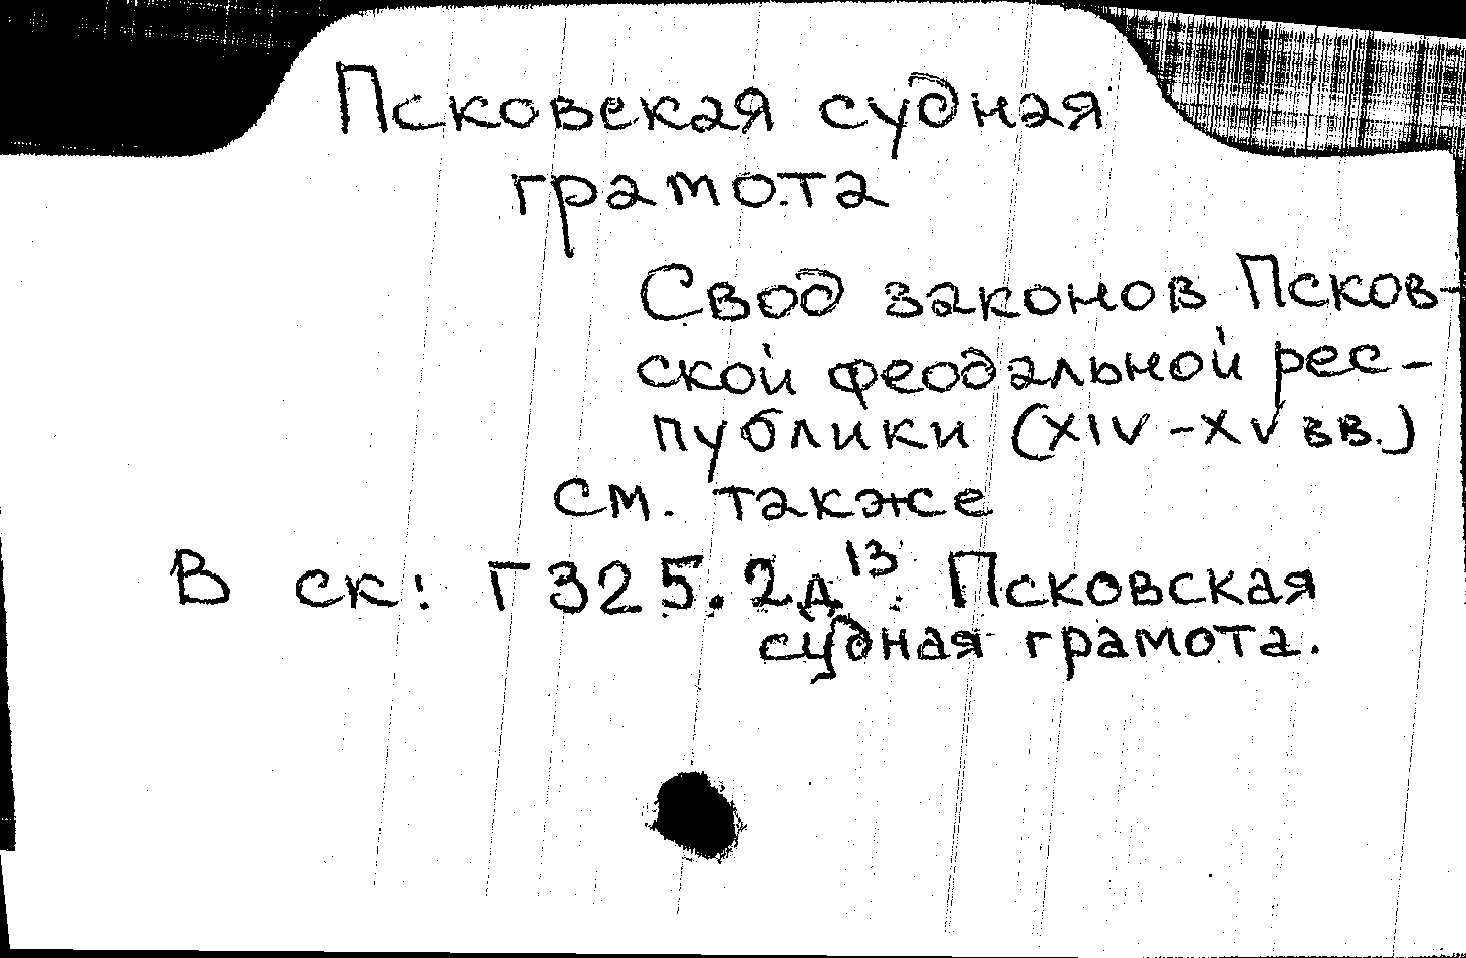 Псковская судная
грамота
Свод законов Псков-
ской феодальной рес-
публики (XIV-XV вв.)
см. также
В ск: Г325.2д¹³. Псковская
судная грамота.